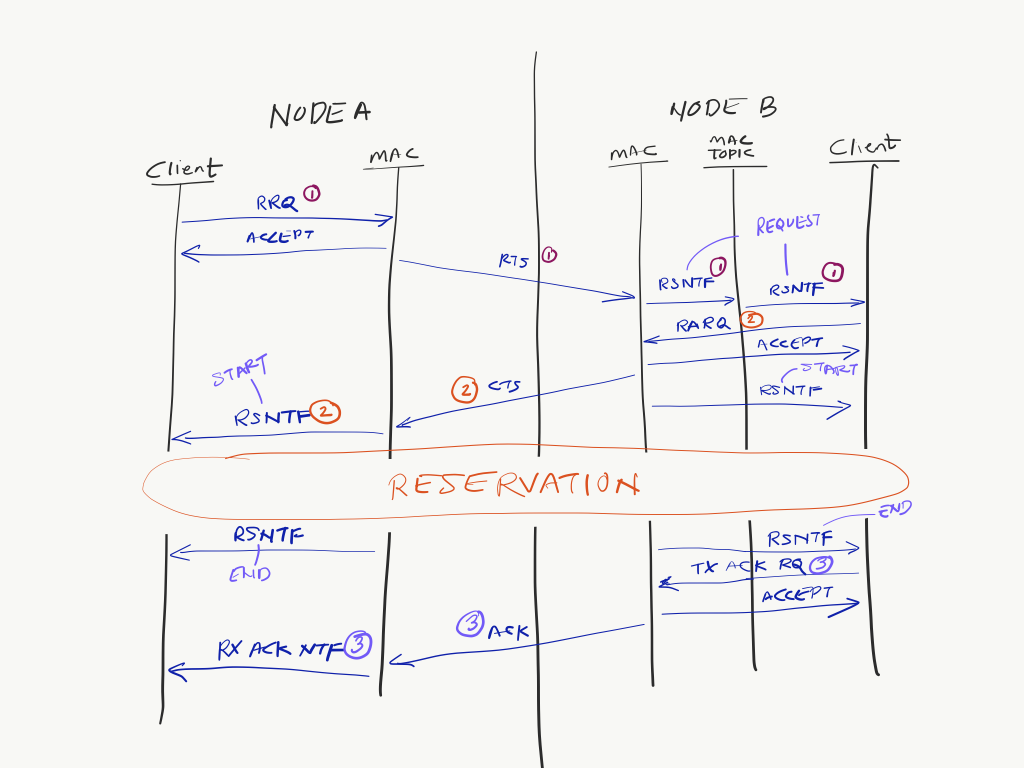 NODE A
NODE B
Client
MAC
MAC
MAC
TOPIC
Client
RRQ ①
ACCEPT
RTS ①
REQUEST
RSNTF ①
RSNTF ①
RARQ ②
ACCEPT
START
RSNTF
② CTS
START
RSNTF ②
RESERVATION
RSNTF
END
END
RSNTF
TX ACK RQ ③
ACCEPT
③ ACK
RX ACK NTF ③